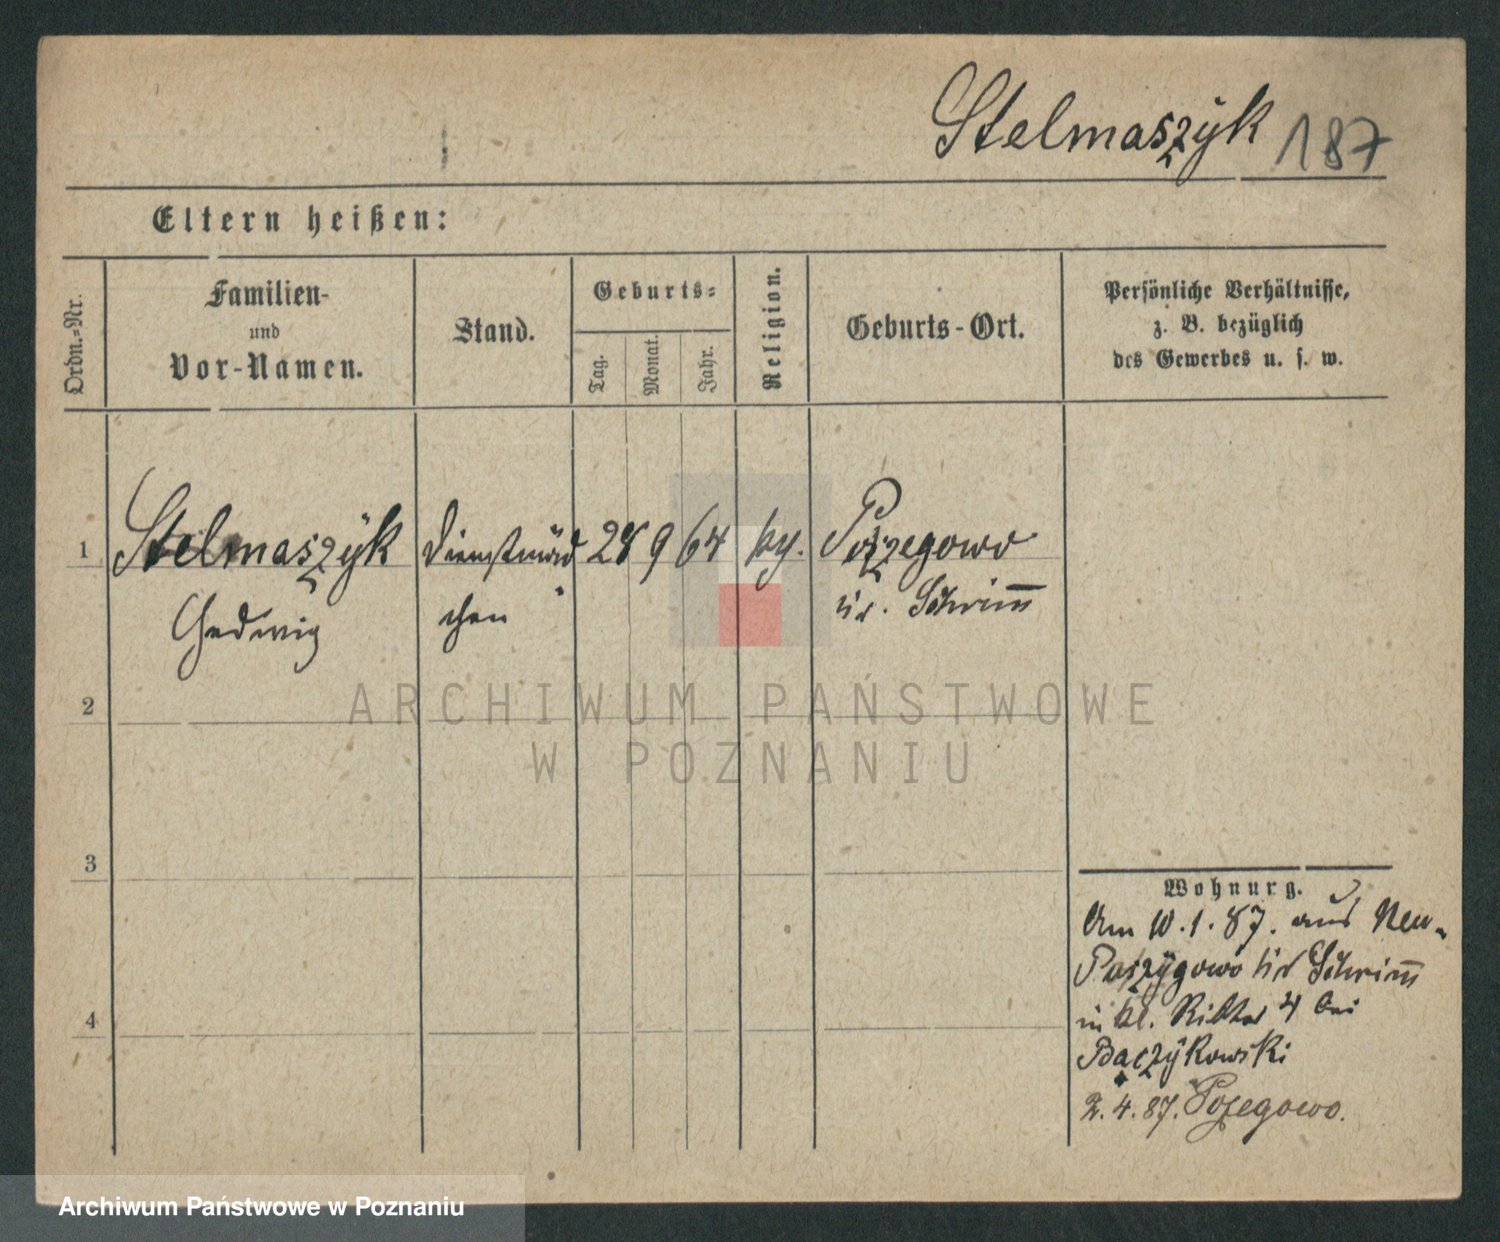 Stelmaszÿk 187
Eltern heißen:
Ordn.-Nr.
Familien-
und
Vor-Namen.
Stand.
Geburts-
Tag.
Monat.
Jahr.
Religion.
Geburts-Ort.
Persönliche Verhältnisse,
z. B. bezüglich
des Gewerbes u. s. w.
1 Stelmaszÿk Dienstmäd 28 9 64 Poszegowo
Hedwig chen Schrimm
2
3
4
Wohnung.
Am 10.1.87. aus Neu-
Poszÿgowo Schrimm
in Kl. Ritter 4 bei
Baczÿkowski
2.4.87. Pozegowo.
ARCHIWUM PAŃSTWOWE
W POZNANIU
Archiwum Państwowe w Poznaniu